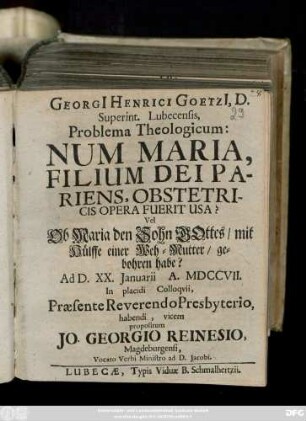 GEORGI HENRICI GOETZI, D.
Superint. Lubecensis,
Problema Theologicum:
NUM MARIA,
FILIUM DEI PA-
RIENS, OBSTETRI-
CIS OPERA FUERIT USA?
Vel
Ob Maria den Sohn GOttes / mit
Hülffe einer Weh-Mutter / ge-
bohren habe?
Ad D. XX. Januarii A. MDCCVII.
In placidi Colloqvii,
Præsente Reverendo Presbyterio,
habendi, vicem
propositum
JO. GEORGIO REINESIO,
Magdeburgensi,
Vocato Verbi Ministro ad D. Jacobi.
LUBECÆ, Typis Viduæ B. Schmalhertzii.